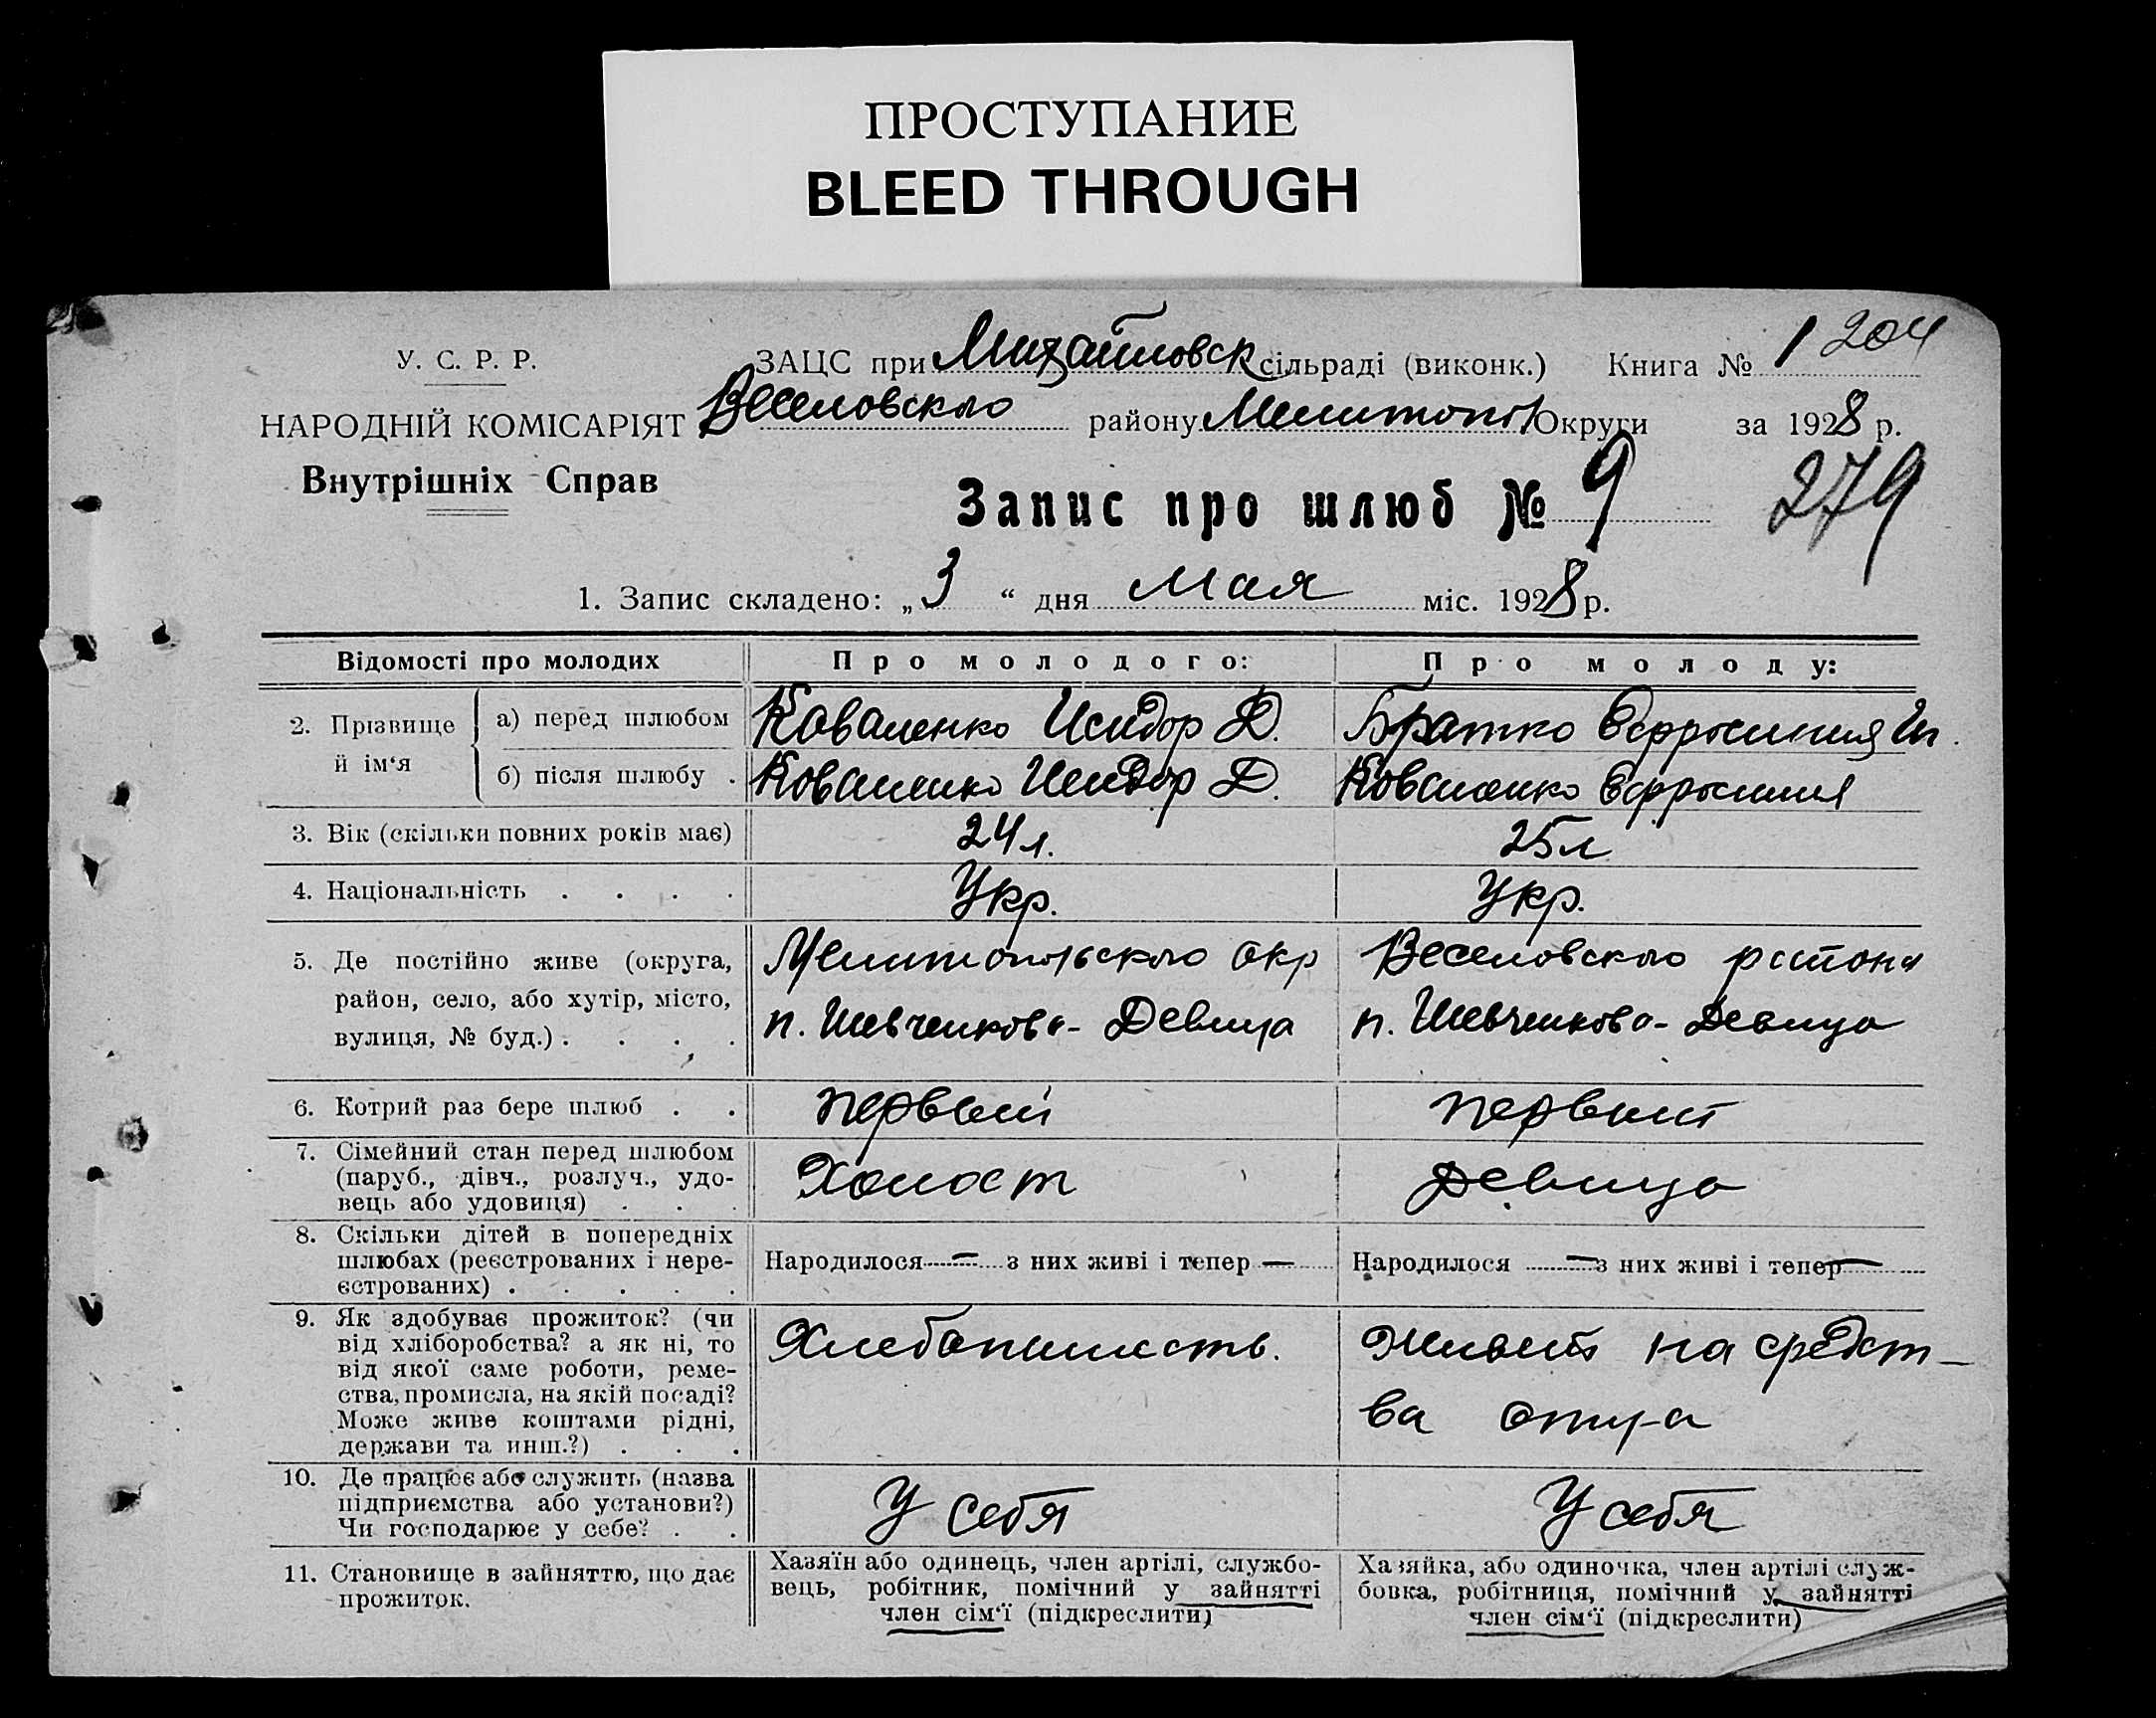 ПРОСТУПАНИЕ
BLEED THROUGH
У. С. Р. Р.
ЗАЦС при Михайловск сільраді (виконк.) Книга № 1 204
НАРОДНІЙ КОМІСАРІЯТ Веселовского району Мелитопол Округи за 1928 р.
Внутрішніх Справ
Запис про шлюб № 9 279
1. Запис складено: „3“ дня Мая міс. 1928 р.
Відомості про молодих Про молодого: Про молоду:
2. Прізвище й ім‘я
а) перед шлюбом Коваленко Исидор Д. Братко Ефросиния
б) після шлюбу . Коваленко Исидор Д. Коваленко Ефросиния
3. Вік (скільки повних років має) 24 л. 25 л
4. Національність . . . . Укр. Укр.
5. Де постійно живе (округа, район, село, або хутір, місто, вулиця, № буд.) . . . .
Мелитопольского окр
п. Шевченкова-Девица
Веселовского района
п. Шевченкова-Девица
6. Котрий раз бере шлюб . . первый первый
7. Сімейний стан перед шлюбом
(паруб., дівч., розлуч., удо-
вець або удовиця) . . .
Холост Девица
8. Скільки дітей в попередніх
шлюбах (реєстрованих і нере-
єстрованих) . . . . .
Народилося — з них живі і тепер —
Народилося — з них живі і тепер —
9. Як здобуває прожиток? (чи
від хліборобства? а як ні, то
від якої саме роботи, реме-
ства, промисла, на якій посаді?
Може живе коштами рідні,
держави та инш.?) . . .
Хлебопашеств.
Живет на средст-
ва отца
10. Де працює або служить (назва
підприємства або установи?)
Чи господарює у себе? . .
У себя У себя
11. Становище в зайняттю, що дає
прожиток.
Хазяїн або одинець, член артілі, службо-
вець, робітник, помічний у зайнятті
член сім‘ї (підкреслити)
Хазяйка, або одиночка, член артілі служ-
бовка, робітниця, помічний у зайнятті
член сім‘ї (підкреслити)